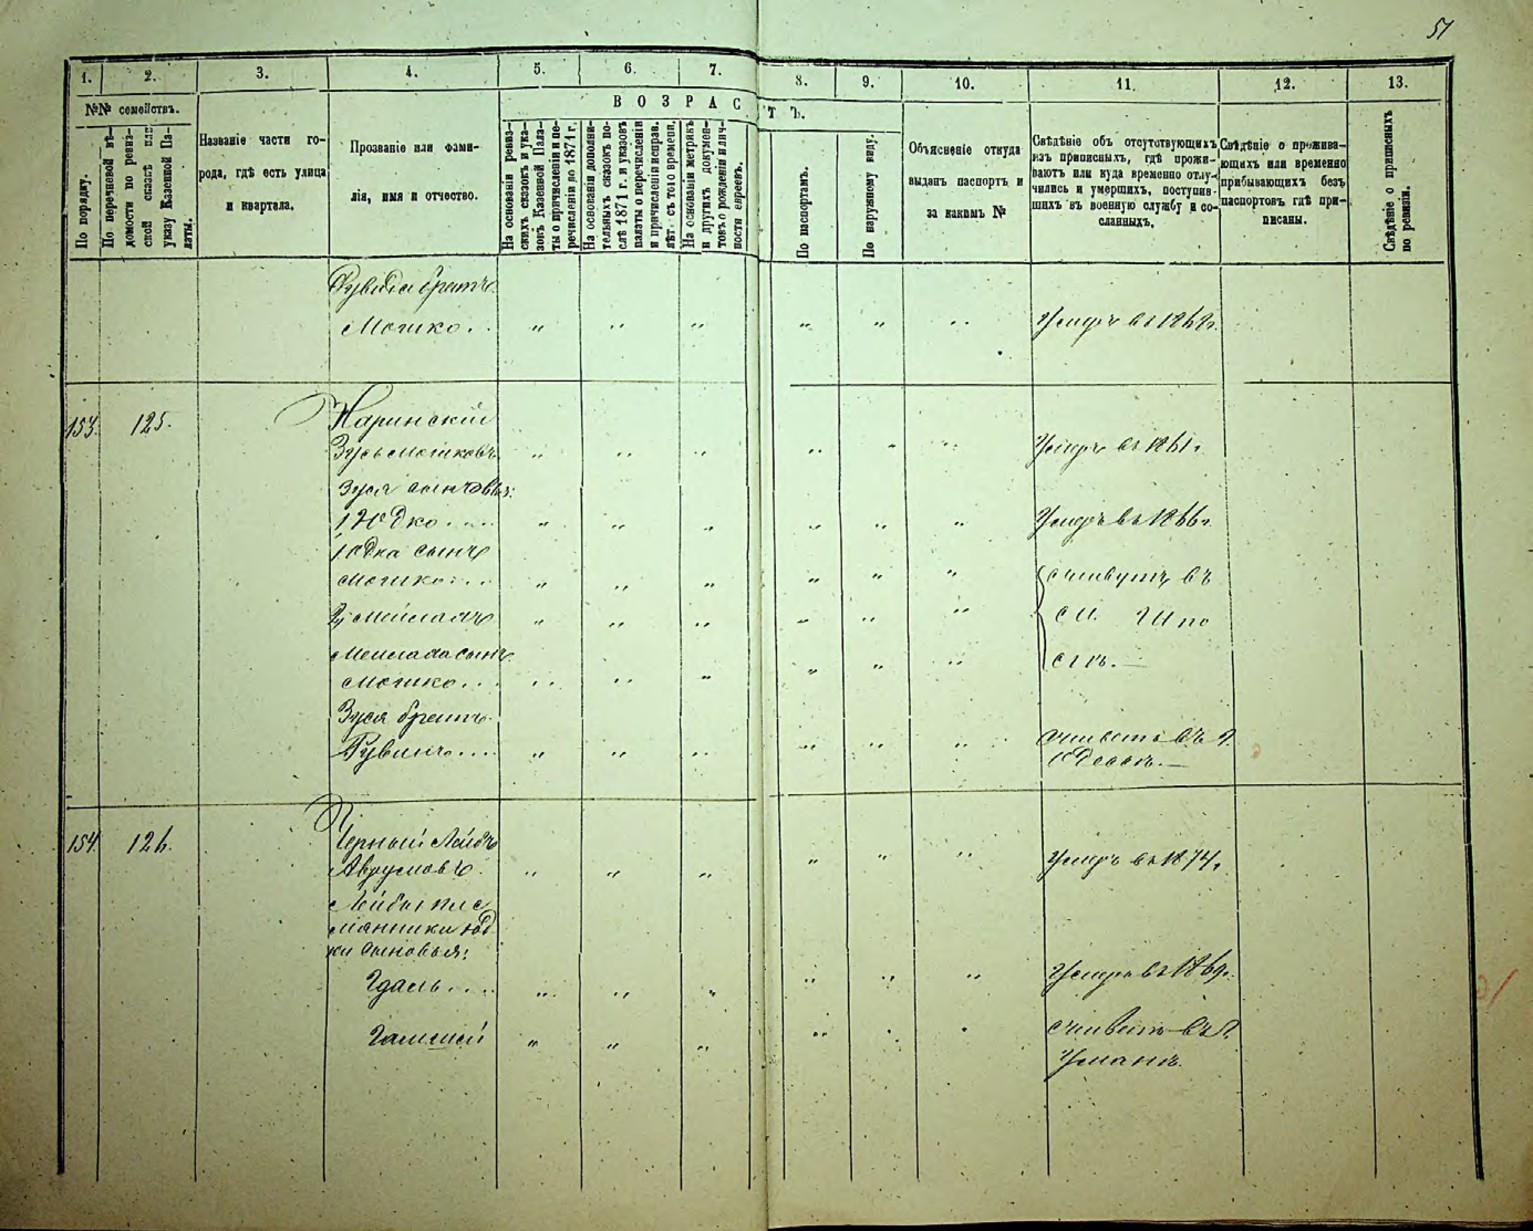 51
1. 2. 3. 4. 5. 6. 7. 8. 9. 10. 11. 12. 13.
№№ семействъ.
По порядку.
По перечневой вѣ-
домости по ревиз-
ской сказкѣ или
указу Казенной Па-
латы.
Названіе части го-
рода, гдѣ есть улица
и квартала.
Прозваніе или фами-
лія, имя и отчество.
ВОЗРАСТЪ.
На основаніи ревиз-
скихъ сказокъ и ука-
зовъ Казенной Пала-
ты о причисленіи и пе-
речисленіи до 1871 г.
На основаніи дополни-
тельныхъ сказокъ по-
слѣ 1871 г. и указовъ
палаты о перечисленіи
и причисленіи исправ.
лѣт. съ того времени.
На основаніи метрикъ
и другихъ докумен-
товъ о рожденіи и лич-
ности евреевъ.
По паспортамъ.
По наружному виду.
Объясненіе откуда
выданъ паспортъ и
за какимъ №
Свѣдѣніе объ отсутствующихъ
изъ приписныхъ, гдѣ прожи-
ваютъ или куда временно отлу-
чились и умершихъ, поступив-
шихъ въ военную службу и со-
сланныхъ.
Свѣдѣніе о прожива-
ющихъ или временно
прибывающихъ безъ
паспортовъ гдѣ при-
писаны.
Свѣдѣніе о приписныхъ
по ревизіи.
братъ
Мошко . . " " " " " " Умеръ въ 1869г.
153. 125. Наринскій
Зусь Мошковъ " " " " " " Умеръ въ 1861г.
Зуся сыновья:
1й Юдко . . . . " " " " " " Умеръ въ 1866г.
Юдка сынъ
Мошко . . . " " " " " " живутъ въ
2й Мейлахъ " " " " " " М. Шпо
Мейлаха сынъ
Мошко . . . " " " " " "
Зуся братъ
Рувинъ . . . . " " " " " " живетъ въ г.
Одессѣ.
154. 126. Черный Лейбъ
Аврумовъ. " " " " " " Умеръ въ 1874г.
Лейбы пле
мянники Юд
ки сыновья:
Гдаль . . . . " " " " " " Умеръ въ 1869г.
" " " " " " живетъ въ г.
Умани.